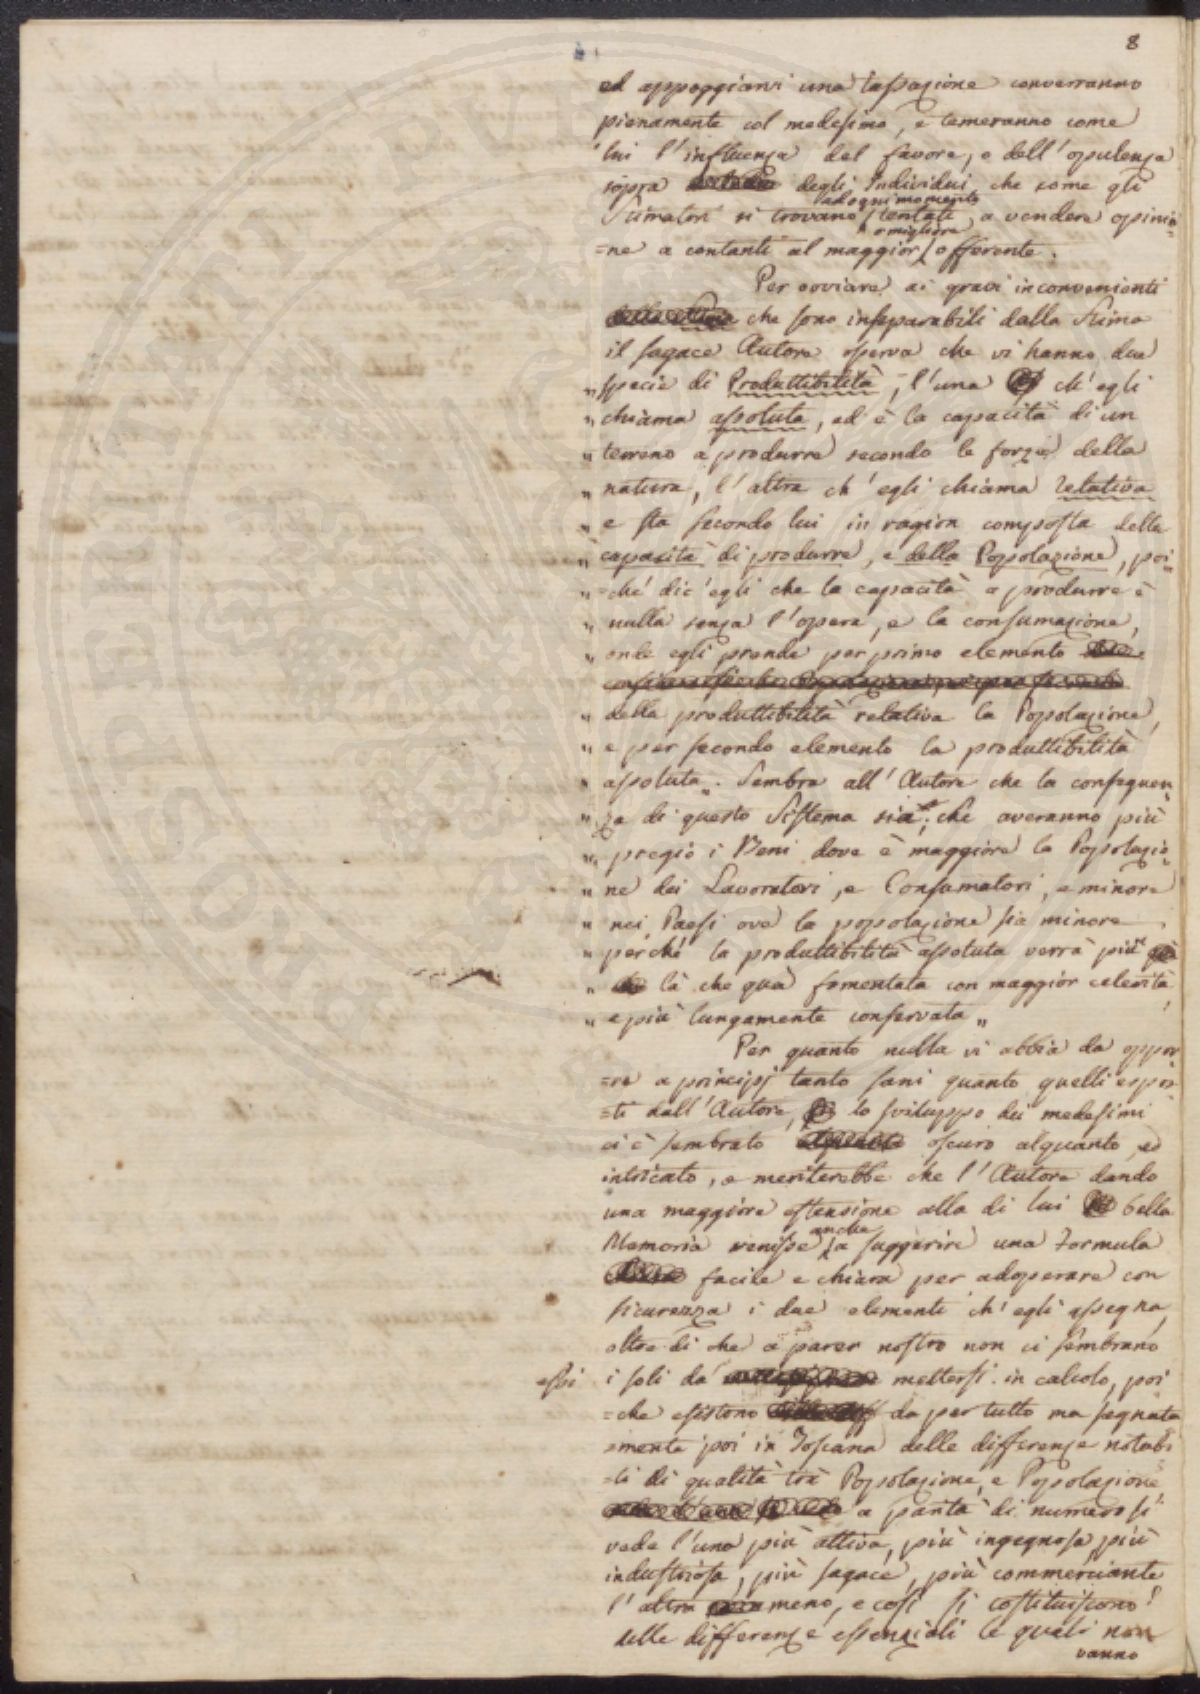 8
ed appoggiarvi una tassazione converranno
pienamente col medesimo, e temeranno come
lui l'influenza del favore, e dell'opulenza
sopra degli Individui che come gli
ad ogni momento
Stimatori si trovano tentati a vendere opinio
o migliore
=ne a contanti al maggior offerente.
Per ovviare ai gravi inconvenienti
che sono inseparabili dalla Stima
il sagace Autore osserva che vi hanno due
„ specie di Produttibilità, l'una ch'egli
„ chiama assoluta, ed è la capacità di un
„ terreno a produrre secondo le forze della
„ natura, l'altra ch'egli chiama relativa
„ e sta secondo lui in ragion composta della
„ capacità di produrre, e della Popolazione, poi
„ =ché dic'egli che la capacità a produrre è
„ nulla senza l'opera, e la consumazione,
„ onde egli prende per primo elemento
„ della produttibilità relativa la Popolazione,
„ e per secondo elemento la produttibilità
„ assoluta„. Sembra all'Autore che la conseguen
„ za di questo Sistema sia; che averanno più
„ pregio i Beni dove è maggiore la Popolazio
„ ne dei Lavoratori, e Consumatori, e minore
„ nei Paesi ove la popolazione sia minore
„ perché la produttibilità assoluta verrà più
„ là che quà fomentata con maggior celerità
„ e più lungamente conservata„
Per quanto nulla vi abbia da oppor
=re a principj tanto sani quanto quelli espos
=ti dall'Autore, lo sviluppo dei medesimi
ci è sembrato oscuro alquanto, ed
intricato, e meriterebbe che l'Autore dando
una maggiore estensione alla di lui bella
anche
Memoria venisse a suggerire una Formula
facile e chiara per adoperare con
sicurezza i due elementi ch'egli assegna,
oltre di che a parer nostro non ci sembrano
essi i soli da mettersi in calcolo, poi
=che esistono da per tutto ma segnata
=mente poi in Toscana delle differenze notabi
=li di qualità trà Popolazione, e Popolazione
a parità di numero si
vede l'una più attiva, più ingegnosa, più
industriosa, più sagace, più commerciante
l'altra meno, e così si costituiscono
delle differenze essenziali le quali non
vanno